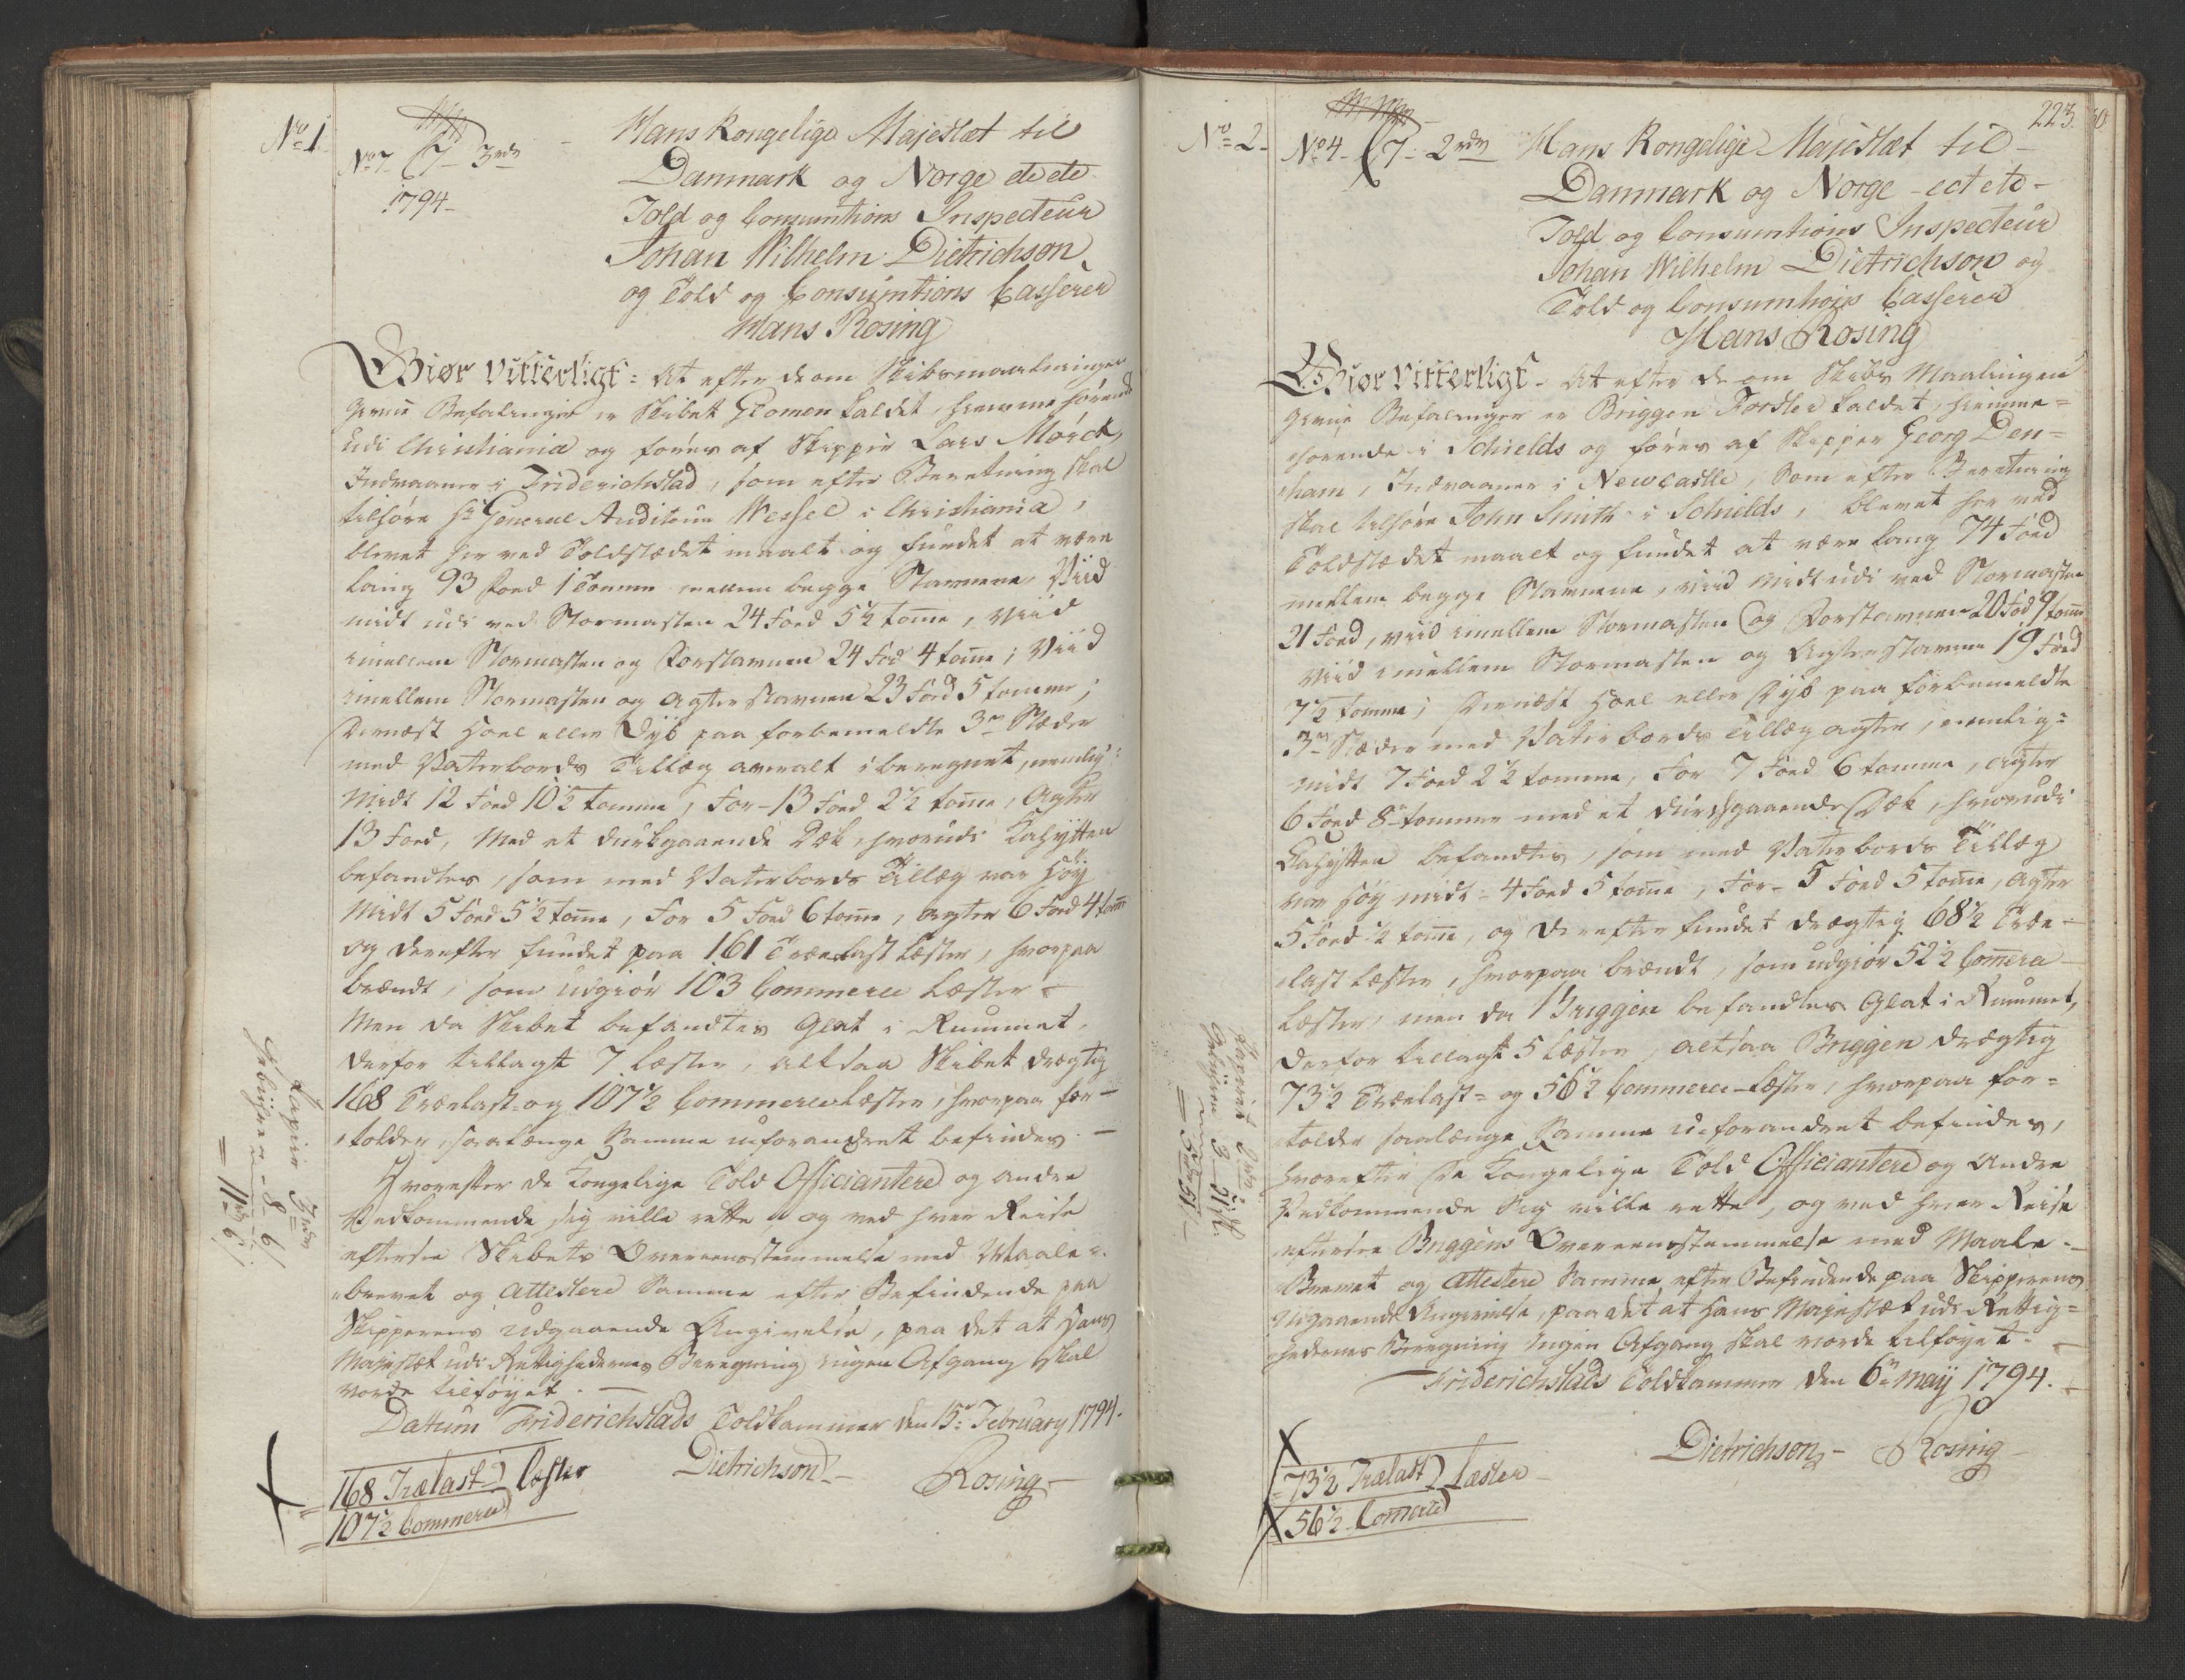 No 1
No 7. C7 3rdr
1794
Hans Kongelige Majestæt til
Danmark og Norge etc etc
Told og Consumtions Inspecteur
Johan Wilhelm Dietrichson
og Told og Consumtions Casserer
Hans Rosing
Giør Vitterligt: At efter de om Skibsmaalningen
givne Befalinger er Skibet Glomen kaldet, hiemmehørende
udi Christiania og føres af Skipper Lars Mørch,
Indvaaner i Friderichstad, som efter Beretning skal
tilhøre Hr General Auditeur Wessel i Christiania,
blevet her ved Toldstædet maalt og fundet at være
lang 93 Foed 1 Tomme mellem begge Stavnene, Viid
midt udi ved Stormasten 24 Foed 5½ tome, Viid
imellem Stormasten og Forstavnen 24 Fod 4 tome; Viid
imellem Stormasten og Agterstavnen 23 Foed 5 tomme;
Dernæst Hoel eller Dyb paa forbemeldte 3de Stæder
med Vaterbords Tillæg overalt iberegnet, nemlig:
Midt 12 Foed 10½ tomme, For 13 Foed 2½ tome, Agter
13 Foed, Med et durkgaaende Dæk, hvorudi Kahytten
befandtes, som med Vaterbords Tillæg var høy
Midt 5 Foed 5½ tome, For 5 Foed 6 tome, agter 6 Foed 4 tome
og derefter fundet paa 161 Trælast Læster, hvorpaa
brændt, som udgiør 103 Commerce Læster
Men da Skibet befandtes Glat i Rummet,
derfor tillagt 7 Læster, altsaa Skibet drægtig
168 Trælast- og 107½ Commerce Læster, hvorpaa for-
tolder, saalænge Samme uforandret befindes. -
Hvorefter de Kongelige Told Officiantere og andre
Vedkommende sig ville rette og ved hver Reise
efterse Skibets Overeensstemmelse med Maale-
brevet og attestere Samme efter Befindende paa
Skipperens udgaaende Angivelse, paa det at Hans
Majestæt udi Rettighedernes Beregning ingen Afgang skal
vorde tilføyet. -
Datum Friderichstads Toldkammer den 15de February 1794.
Dietrichson - Rosing -
168 Trælast
107½ Commerce
Læster
Papir 3rdr
Gebyhr 8 - 6
= 11rdr 6
223
No 2
No 4 - C7 - 2rdr
Hans Kongelige Majestæt til -
Danmark og Norge - ect etc -
Told og Consumtions Inspecteur
Johan Wilhelm Dietrichson og
Told og Consumtions Casserer
Hans Rosing
Giør Vitterligt - At efter de om Skibs Maalingen
givne Befalinger er Briggen Fordler kaldet, hiemme=
hørende i Schields og føres af Skipper Georg Den=
ham, Indvaaner i Newcastle, som efter Beretning
skal tilhøre John Smith i Schields, blevet her ved
Toldstædet maalt og fundet at være lang 74 Foed
mellem begge Stavnene, viid midt udi ved Stormasten
21 Foed, viid imellem Stormasten og Forstavnen 20 Fod 9 tome
Viid imellem Stormasten og Agterstavnen 19 Foed
7½ tomme; Dernæst Hoel eller Dyb paa forbemeldte
3de Stæder med Vaterbords Tillæg agter, nemlig=
midt 7 Foed 2½ tomme, For 7 Foed 6 tomme, agter
6 Foed 8 tomme med et durchgaaende Dæk, hvorudi
Kahytten befandtes, som med Vaterbords Tillæg
var høy midt - 4 Foed 5 tome, For - 5 Foed 5 tome, agter
5 Foed ½ tome, og derefter fundet drægtig 68½ Træ-
last Læster, hvorpaa brændt, som udgiør 52½ Comerce
Læster, men da Briggen befandtes Glat i Rummet,
derfor tillagt 5 Læster, altsaa Briggen drægtig
73½ Trælast- og 56½ Commerce-Læster, hvorpaa for=
tolder saalænge Samme uforandret befindes,
hvorefter de Kongelige Told Officiantere og Andre
Vedkommende Sig ville rette, og ved hver Reise
efterse Briggens Overeensstemmelse med Maale-
Brevet og attestere Samme efter Befindende paa Skipperens
udgaaende Angivelse, paa det at Hans Majestæt udi Rettig=
hedernes Beregning Ingen Afgang skal vorde tilføyet. -
Friderichstads Toldkammer den 6te Maij 1794.
Dietrichson - Rosing
73½ Trælast
56½ Comerce
Læster